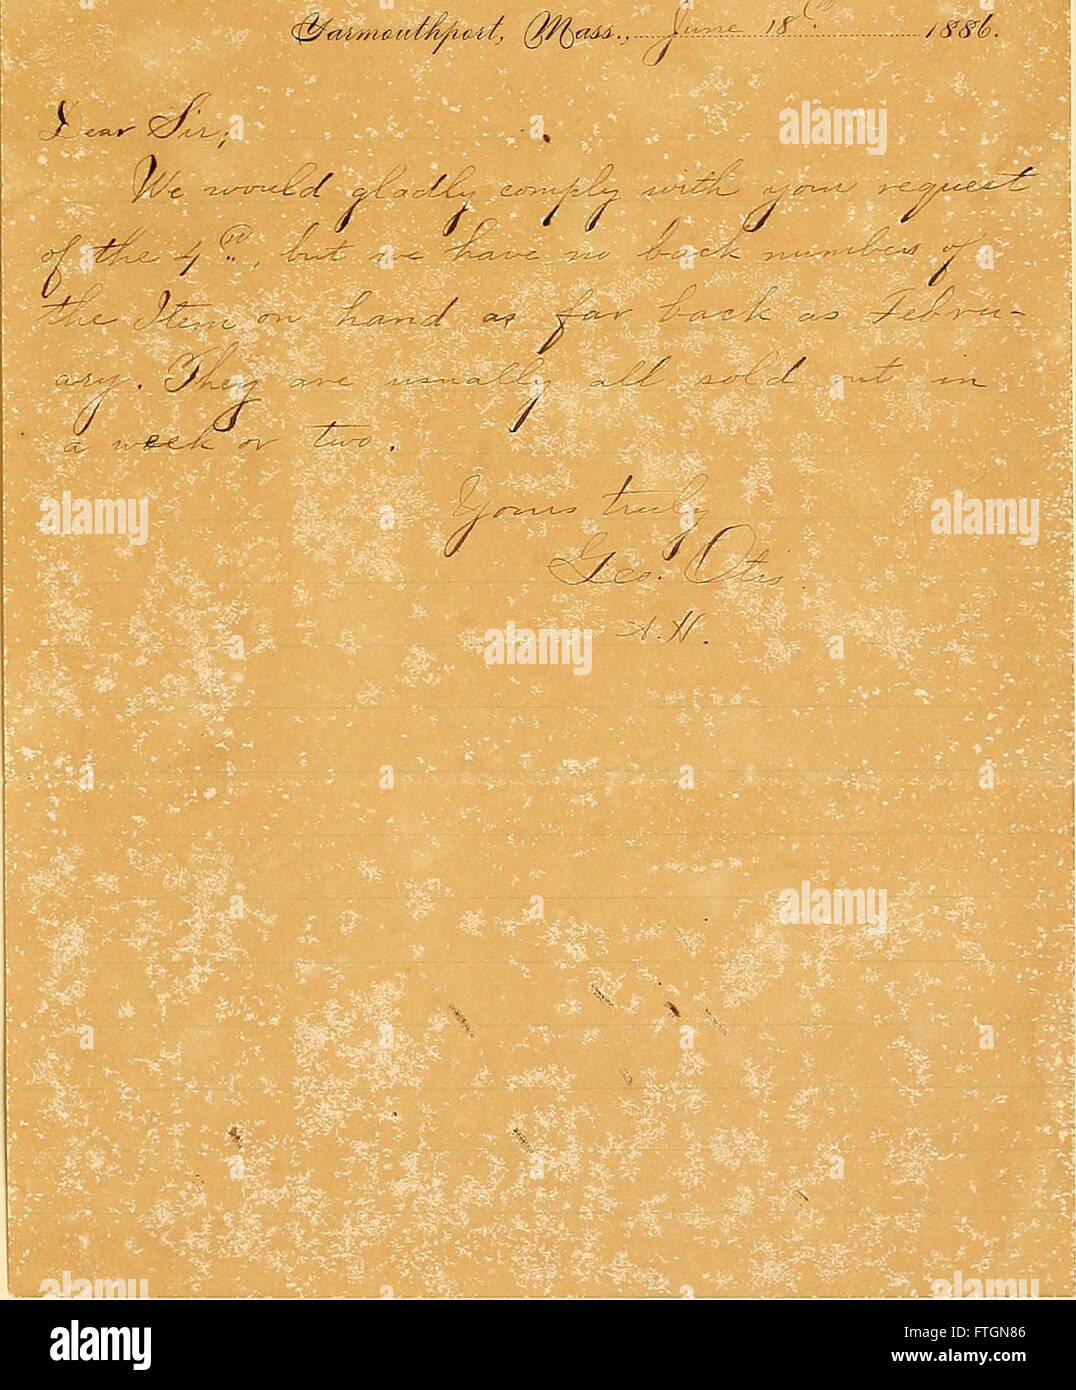 Yarmouthport, Mass., June 18th 1886.
Dear Sir;
We would gladly comply with your request
of the 4th, but we have no back numbers of
the Item on hand as far back as Febru-
ary. They are usually all sold out in
a week or two.
Yours truly
Geo. Otis
A.H.
alamy
alamy stock photo
FTGN86
www.alamy.com